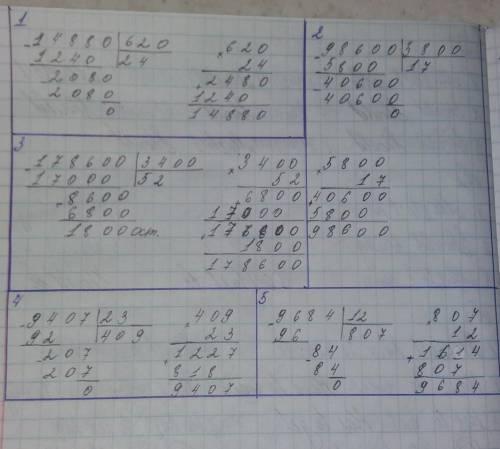 1
-14880 | 620
1240 | 24
-2080
2080
0
×620
24
2480
+1240
14880
2
-98600 | 5800
5800 | 17
-40600
40600
0
3
-178600 | 3400
17000 | 52
-8600
6800
1800 ост.
×3400
52
6800
17000
+176800
1800
178600
×5800
17
+40600
5800
98600
4
-9407 | 23
92 | 409
-207
207
0
×409
23
+1227
818
9407
5
-9684 | 12
96 | 807
-84
84
0
×807
12
+1614
807
9684